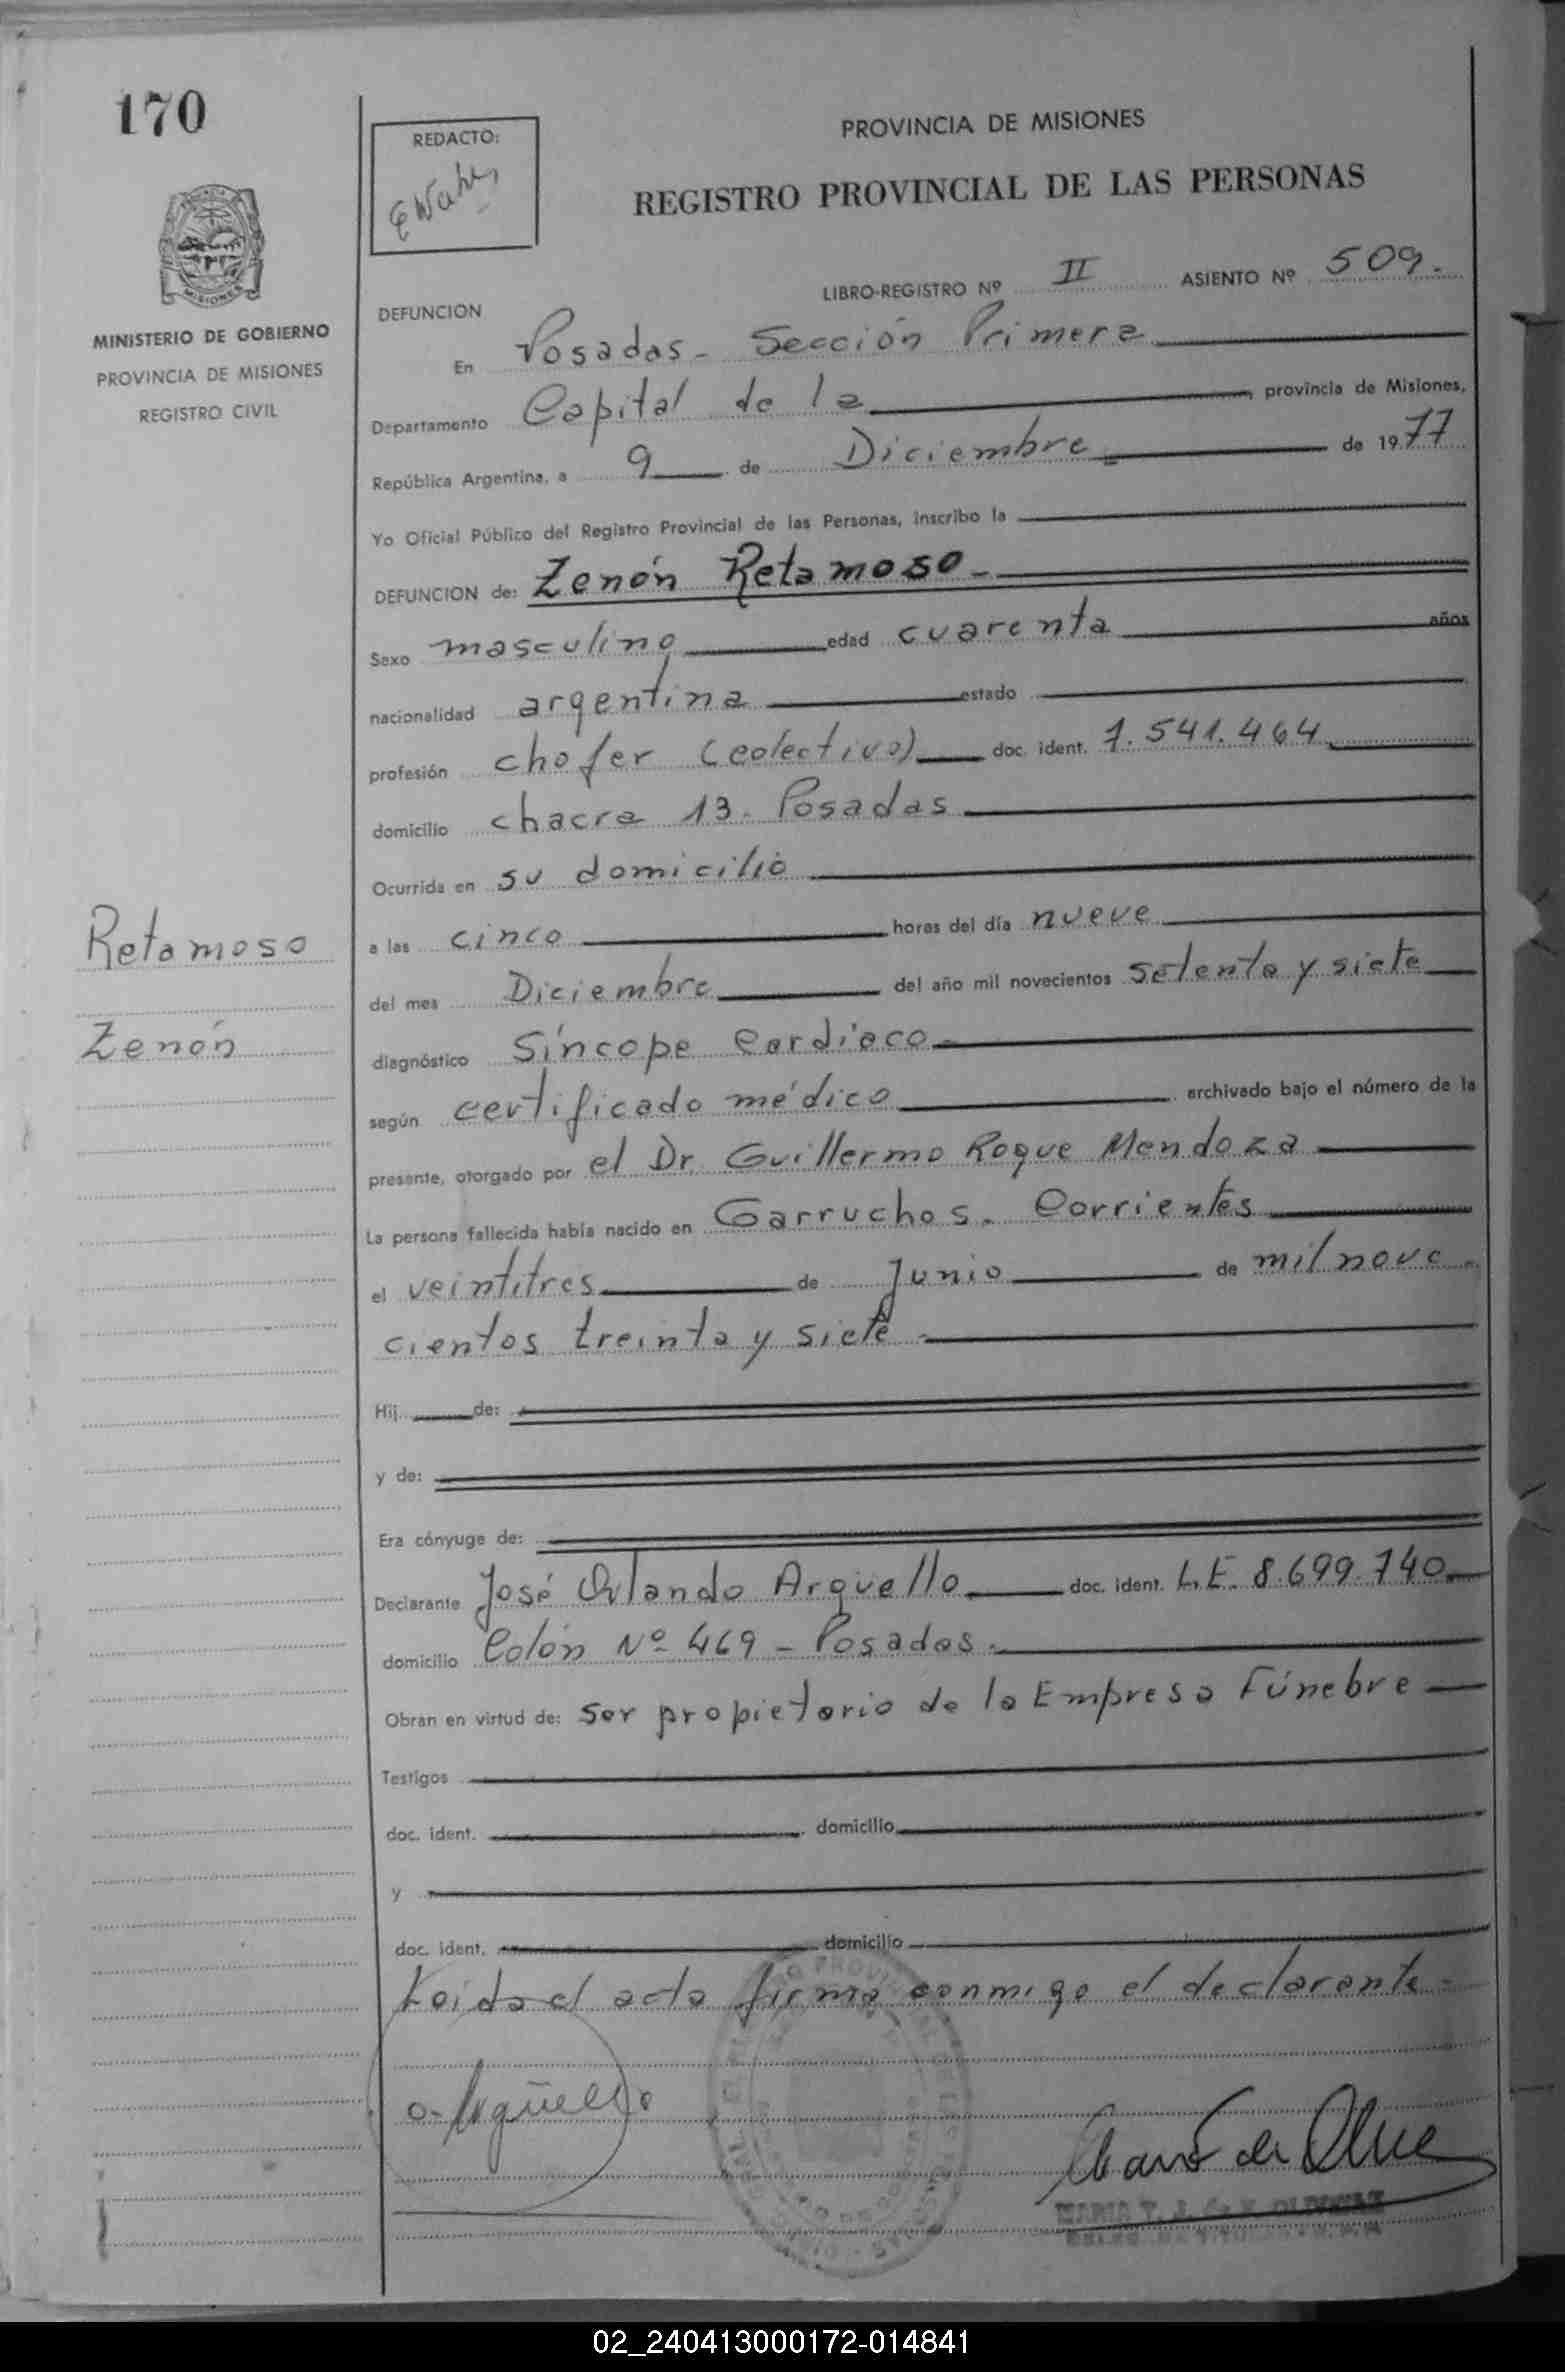 170
REDACTO:
PROVINCIA DE MISIONES
REGISTRO PROVINCIAL DE LAS PERSONAS
MISIONES
MINISTERIO DE GOBIERNO
PROVINCIA DE MISIONES
REGISTRO CIVIL
LIBRO-REGISTRO Nº II ASIENTO Nº 509.
DEFUNCION
En Posadas - Sección Primera
Departamento Capital de la provincia de Misiones,
República Argentina, a 9 de Diciembre de 1977
Yo Oficial Público del Registro Provincial de las Personas, inscribo la
DEFUNCION de: Zenón Retamoso
Sexo masculino edad cuarenta años
nacionalidad argentina estado
profesión chofer (colectivo) doc. ident. 7.541.464
domicilio chacra 13. Posadas
Ocurrida en su domicilio
Retamoso
a las cinco horas del día nueve
del mes Diciembre del año mil novecientos setenta y siete
Zenón
diagnóstico Síncope Cardiaco
según certificado médico archivado bajo el número de la
presente, otorgado por el Dr. Guillermo Roque Mendoza
La persona fallecida había nacido en Garruchos. Corrientes
el veintitres de Junio de mil nove-
cientos treinta y siete
Hij de:
y de:
Era cónyuge de:
Declarante José Orlando Argüello doc. ident. L.E. 8.699.740
domicilio Colón Nº 469 - Posadas.
Obran en virtud de: ser propietario de la Empresa Fúnebre
Testigos
doc. ident. domicilio
y
doc. ident. domicilio
Leída el acta firma conmigo el declarante
O. Argüello
02_240413000172-014841